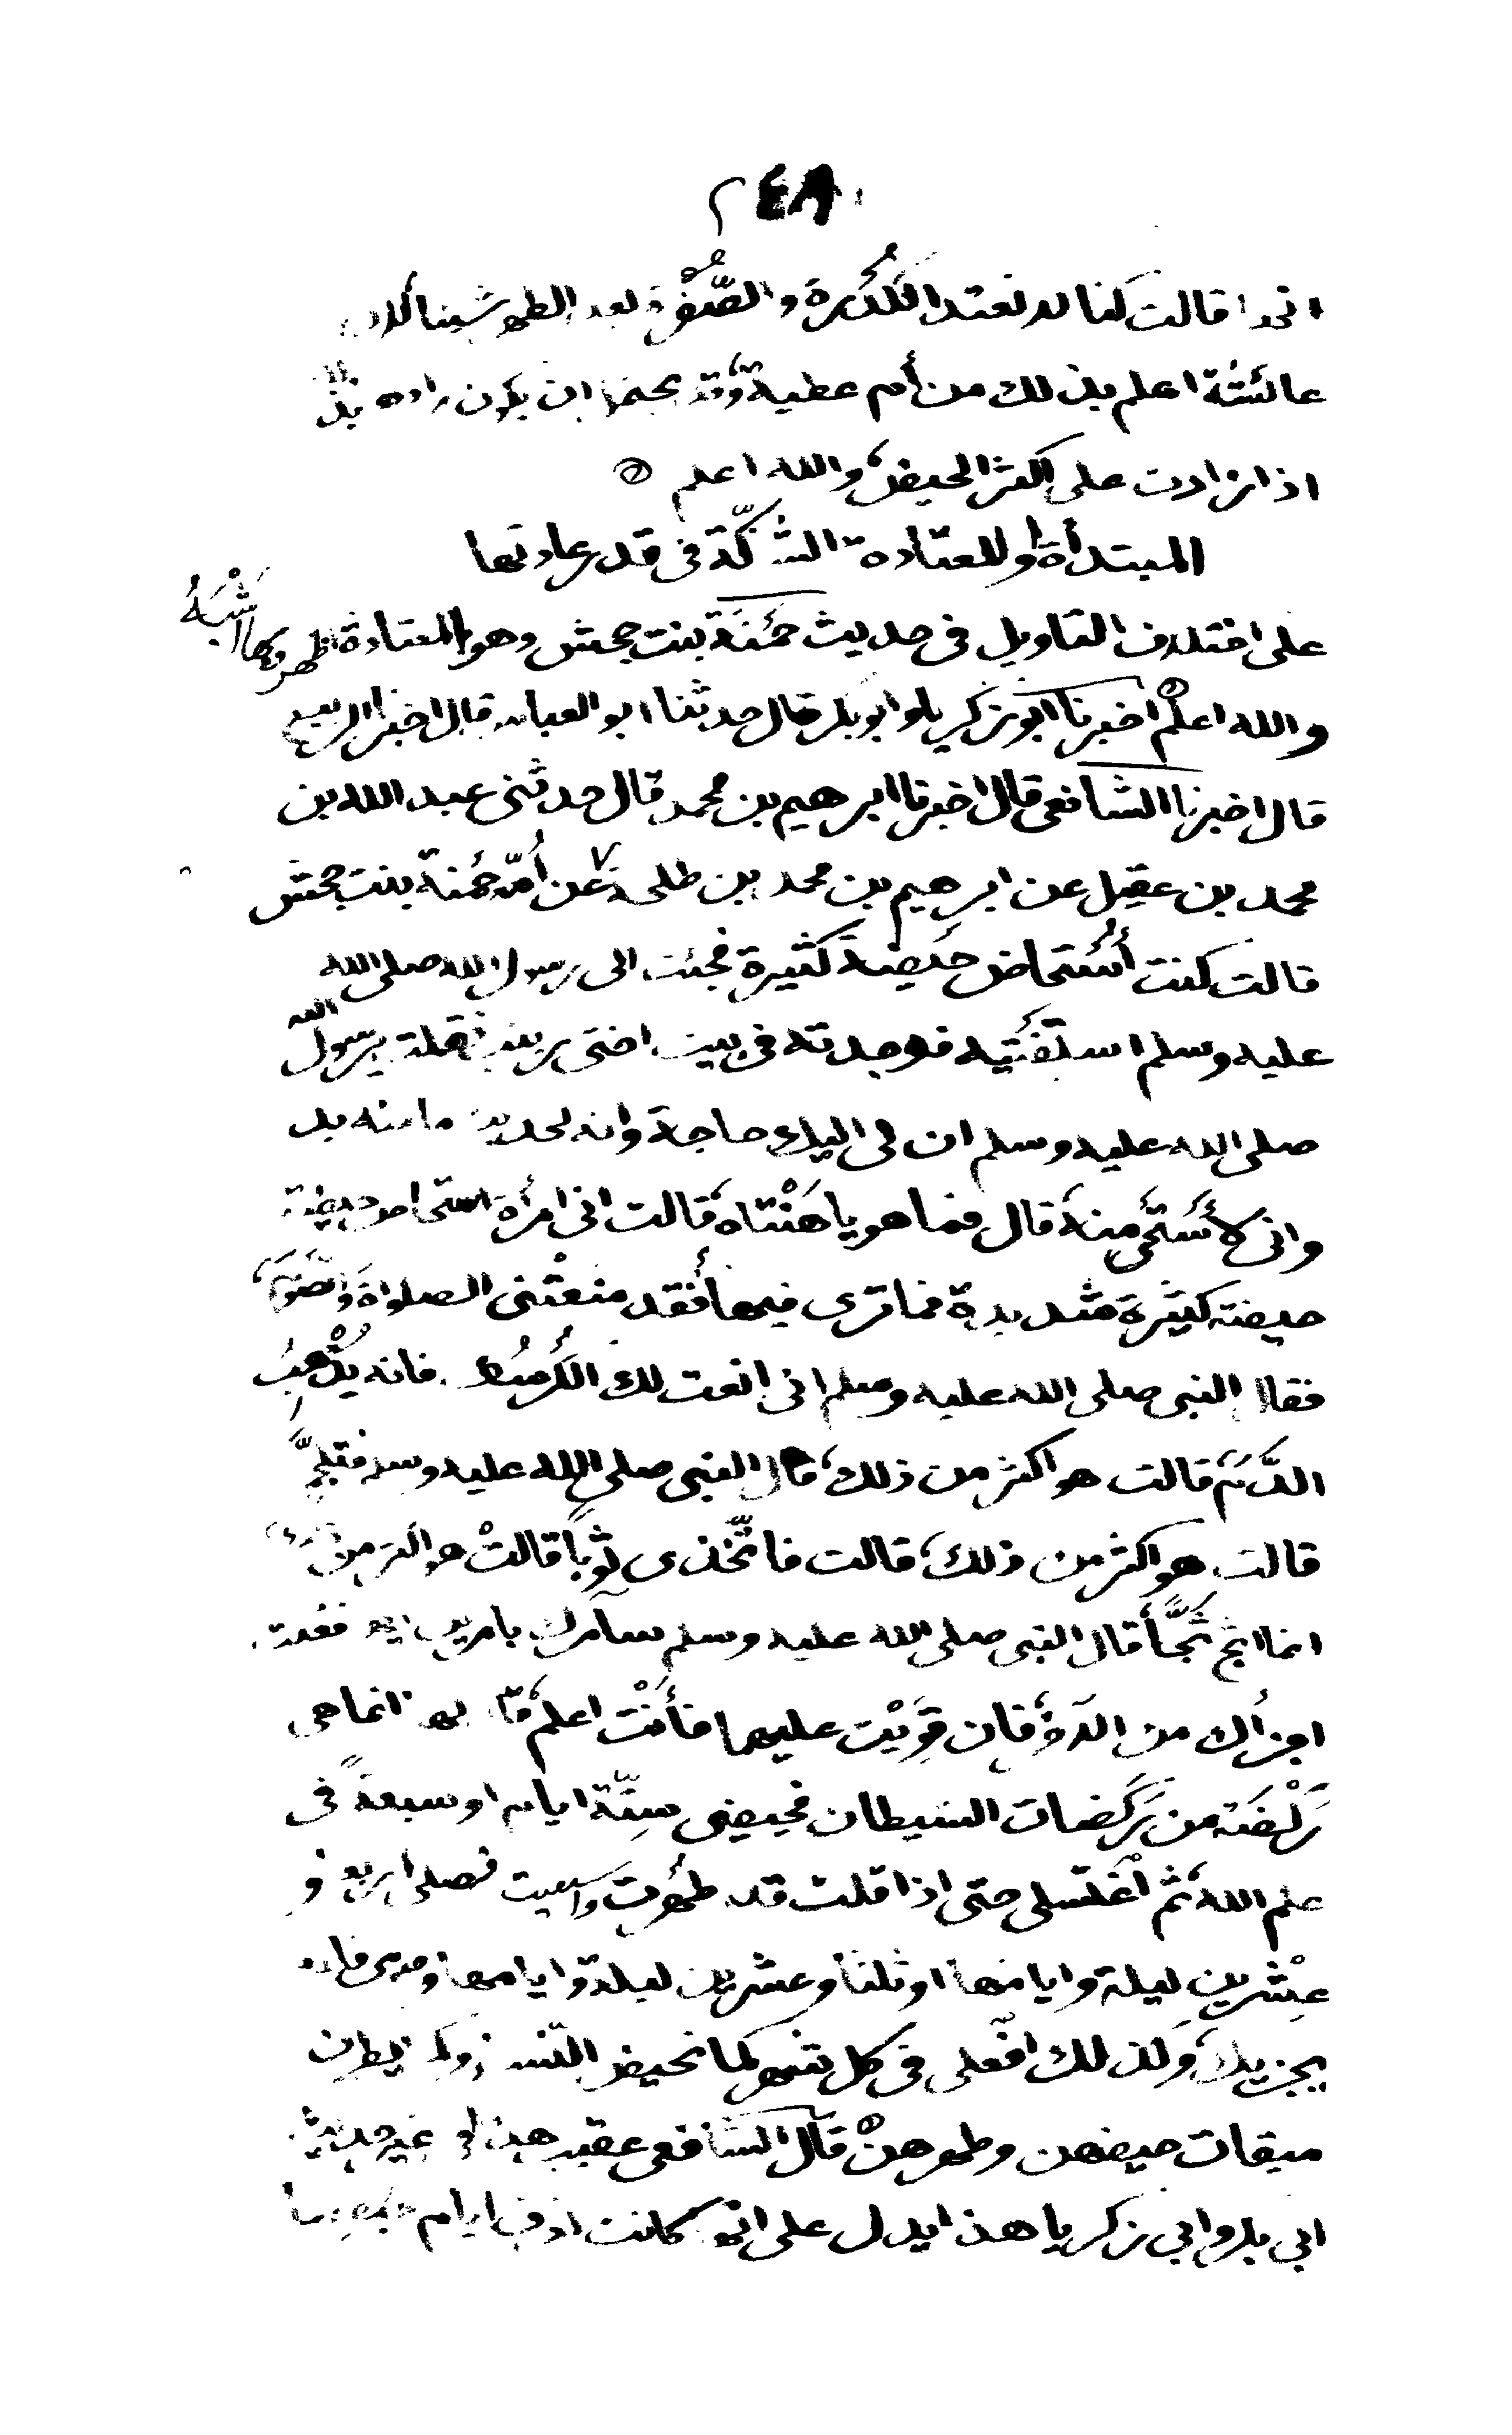 ٢٤٨
انها قالت كنا لا نعتد الكُدْرة والصُّفْرة بعد الطهر شيئا لان
عائشة اعلم بذلك من أم عطية وقد يحتمل ان يكون اراد بذلك
اذا زادت على اكثر الحيض والله اعلم
المبتدأة والمعتادة الشاكّة في قدر عادتها
على اختلاف التاويل في حديث حَمْنَة بنت جحش وهو المعتادة اظهر وبها أَشْبَهُ
والله اعلم اخبرنا ابو زكريا وابو بكر قال حدثنا ابو العباس قال اخبرنا الربيع
قال اخبرنا الشافعي قال اخبرنا ابرهيم بن محمد قال حدثني عبد الله بن
محمد بن عقيل عن ابرهيم بن محمد بن طلحة عن أُمّه حَمْنة بنت جحش
قالت كنت أُسْتحاض حَيضةً كثيرة فجئت الى رسول الله صلى الله
عليه وسلم استفتيه فوجدته في بيت اختي زينب فقلت يرسول الله
صلى الله عليه وسلم ان لي اليك حاجة وانه لحديث ما منه بد
واني لأَسْتَحْي منه قال فما هو يا هَنْتاه قالت اني امرأة استحاض حيضة
حيضة كثيرة شديدة فما ترى فيها فقد منعتْني الصلواة والصَّومَ
فقال النبي صلى الله عليه وسلم اني انعت لك الكُرْسُف فانه يُذْهِبُ
الدَّمَ قالت هو اكثر من ذلك قال النبي صلى الله عليه وسلم فتلجَّمي
قالت هو اكثر من ذلك قالت فاتّخذي ثوباً قالتْ هو اكثر من ذلك
انما اثج ثَجًّا قال النبي صلى الله عليه وسلم سآمرك بامرين ايهما فعلت
اجزأك من الآخر فان قَوِيْتِ عليهما فأَنْتِ اعلم قال لها انما هي
رَكْضَة من رَكَضات الشيطان فحيضي سِتّة ايام او سبعةً في
علم الله ثم اغْتسلي حتى اذا قلت قد طهُرتِ واستنقيت فصلي اربعة و
عِشْرين ليلة وايامها او ثلثا وعشرين ليلة وايامها وصومي فانه
يجزيك وكذلك افْعلي في كل شهر كما تحيض النسا وكما يطهرن
ميقات حيضهن وطهرهنْ قال الشافعي عقيب هذا في غير حديث
ابي بكر وابي زكريا هذا يدل على انها كانت تعرف ايام حيضها